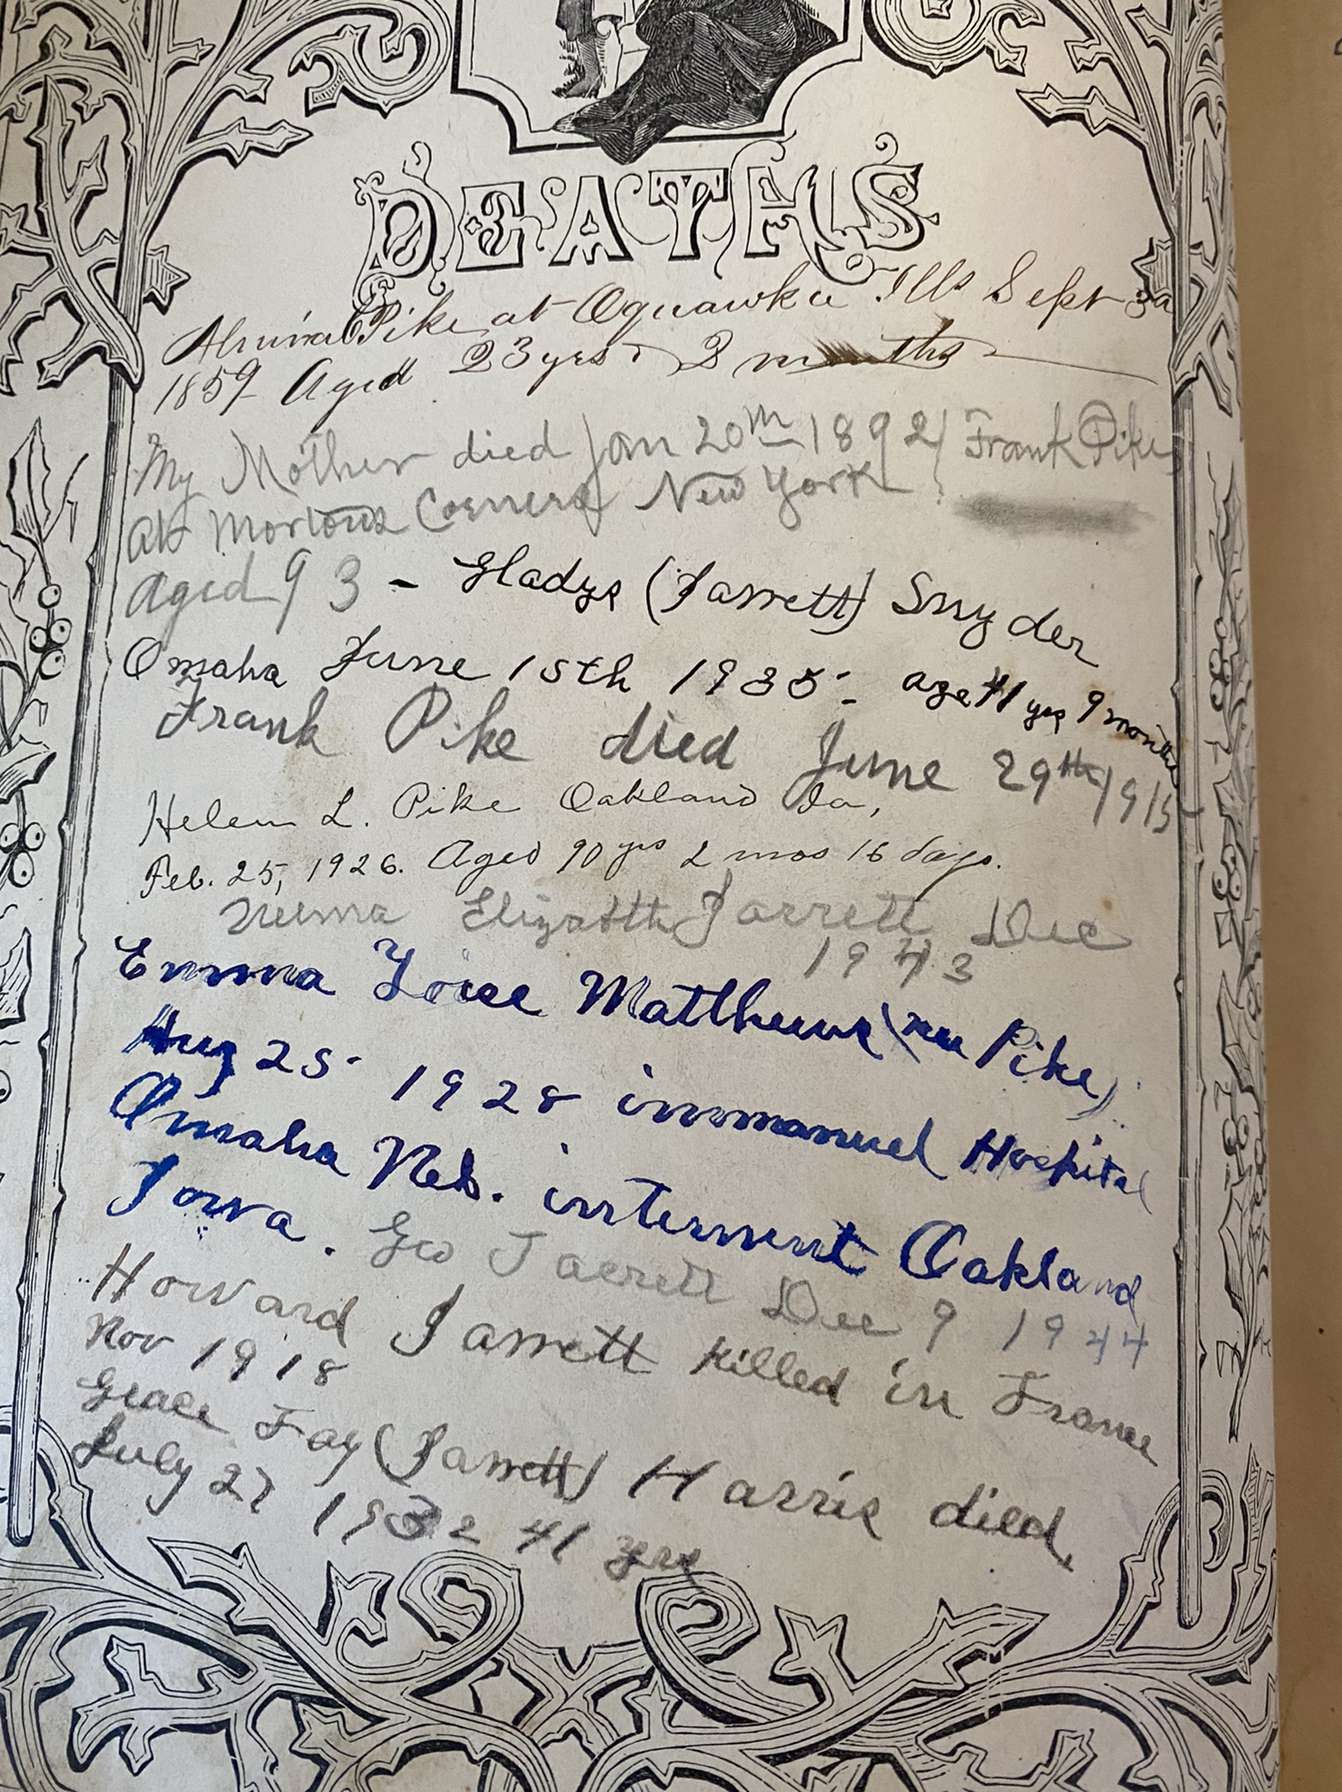 DEATHS
Almira Pike at Oquawka Ills Sept 30
1859 Aged 23 yrs 2 months
My Mother died Jan 20th 1892 Frank Pike
At Mortons Corners New York
Aged 93 - Gladys (Jarrett) Snyder
Omaha June 15th 1935 - age 41 yrs 9 months
Frank Pike died June 29th 1915
Helen L. Pike Oakland Ia,
Feb. 25, 1926. Aged 90 yrs 2 mos 16 days.
Elizabeth Jarrett Dec
1943
Emma Matthews (nee Pike)
Aug 25 - 1928 immanuel Hospital
Omaha Neb. interment Oakland
Iowa. Geo Jarrett Dec 9 1944
Howard Jarrett killed in France
Nov 1918
Grace Fay (Jarrett) Harris died,
July 27 1932 41 yrs